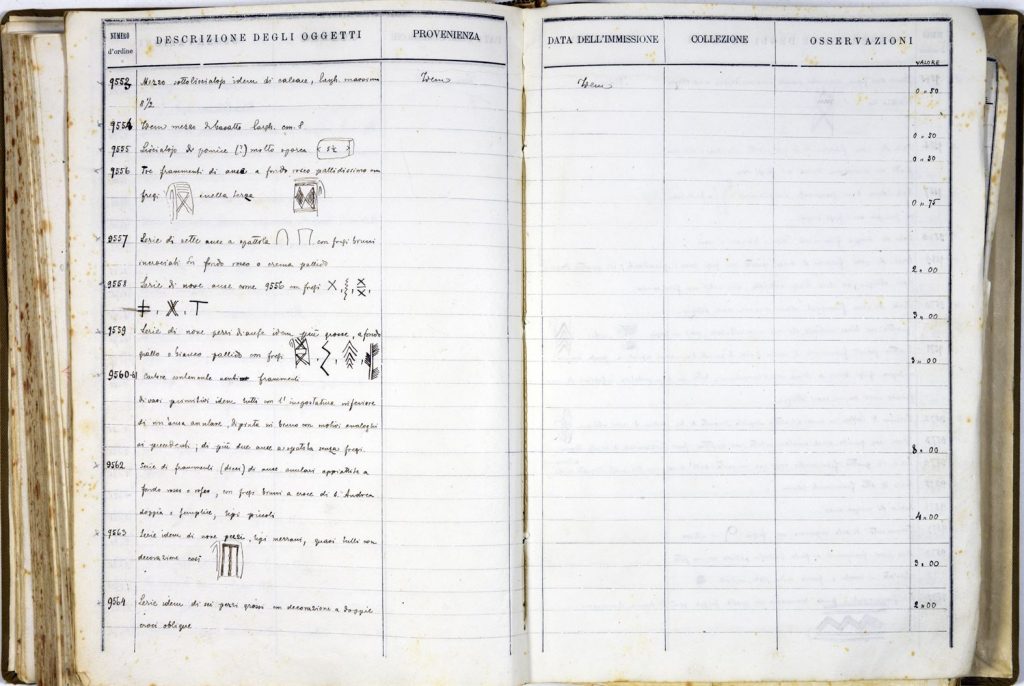 NUMERO d'ordine DESCRIZIONE DEGLI OGGETTI PROVENIENZA DATA DELL'IMMISSIONE COLLEZIONE OSSERVAZIONI
VALORE
9553 Mezzo idem di calcare, largh. massima Idem Idem 0 = 50
8 1/2
9554 Idem mezzo di basalto largh. cm. 8 0 = 50
9555 Lisciatoio di pomice (?) molto sporca 5 1/2 0 = 50
9556 Tre frammenti di anse a fondo roseo pallidissimo con
fregi e nella terza 0 = 75
9557 Serie di sette anse a spatola con fregi bruni
incrociati su fondo roseo o crema pallido 2 = 00
9558 Serie di nove anse come 9556 con fregi
3 = 00
9559 Serie di nove pezzi di anse idem più grosse, a fondo
giallo o bianco pallido con fregi 3 = 00
9560-61 Cartone contenente frammenti
di vasi primitivi idem tutti con l'ingostatura inferiore
di un'ansa anulare, dipinta in bruno con motivi analoghi
ai precedenti; di più due anse a spatola senza fregi. 8 = 00
9562 Serie di frammenti (dieci) di anse anulari appiattite a
fondo roseo o, con fregi bruni a croce di S. Andrea
doppia e semplice, tipi piccoli 4 = 00
9563 Serie idem di nove pezzi, tipi mezzani, quasi tutti con
decorazione così 3 = 00
9564 Serie idem di sei pezzi grossi con decorazione a doppie
croci oblique 2 = 00